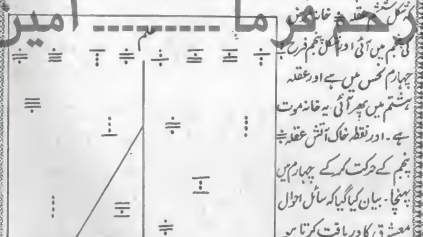 رحم فرما ........ امیر
علم
شکل عقلہ خانہ
کی پنجم میں آئی اور شکل پنجم فرح
چہارم نحس میں ہے اور عقلہ
ہشتم میں پھر آئی یہ خانہ موت
ہے ۔ اور نقطہ خاک آتش عقلہ
پنجم کے حرکت کرکے چہارم میں
پہنچا ۔ بیان کیا گیا کہ سائل احوال
معشوق کا دریافت کرتا ہے